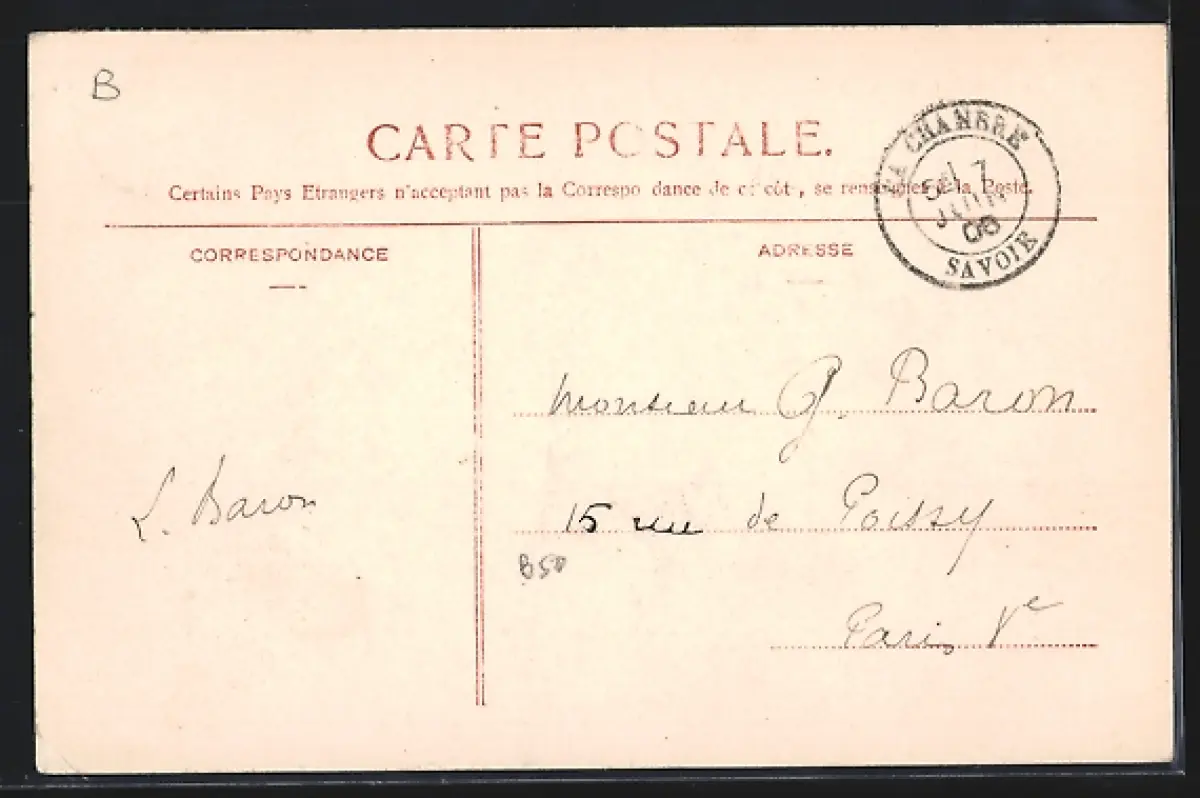 B
CARTE POSTALE.
Certains Pays Etrangers n'acceptant pas la Correspo dance de c côt, se rens à la Poste.
LA CHAMBRE
7
JUIN
08
SAVOIE
CORRESPONDANCE
ADRESSE
Monsieur G. Baron
L. Baron
15 rue de Poissy
B50
Paris Ve